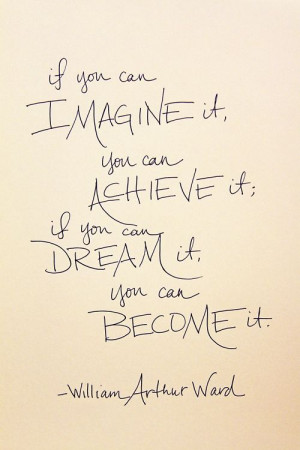 if you can
IMAGINE it,
you can
ACHIEVE it;
if you can
DREAM it,
you can
BECOME it.
-William Arthur Ward